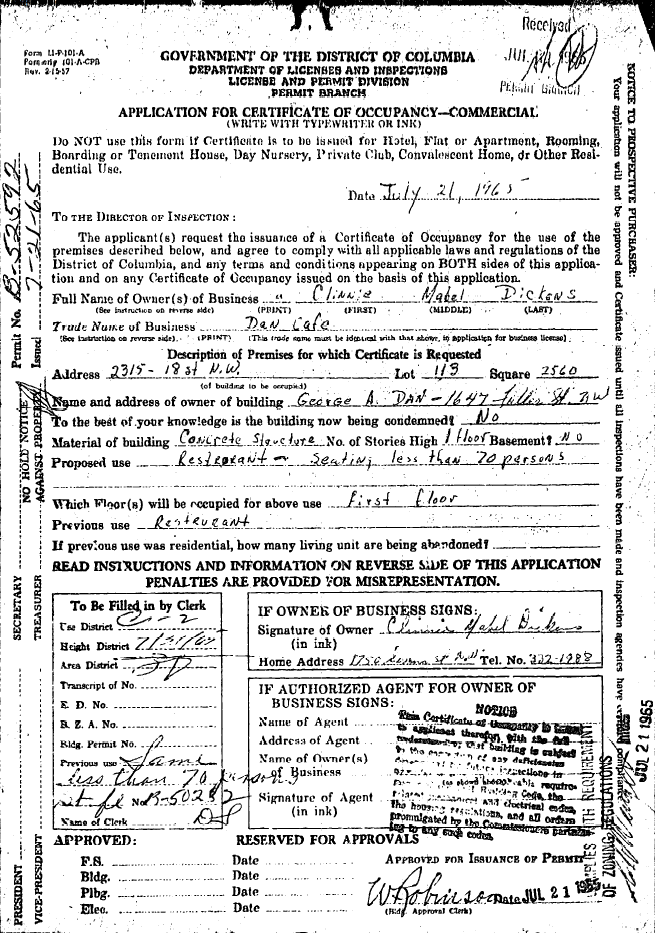 Form LI-F-101-A
Formerly 101-A-CPB
Rev. 2-15-57
Received
PERMIT BRANCH
GOVERNMENT OF THE DISTRICT OF COLUMBIA
DEPARTMENT OF LICENSES AND INSPECTIONS
LICENSE AND PERMIT DIVISION
PERMIT BRANCH
APPLICATION FOR CERTIFICATE OF OCCUPANCY—COMMERCIAL
(WRITE WITH TYPEWRITER OR INK)
Do NOT use this form if Certificate is to be issued for Hotel, Flat or Apartment, Rooming,
Boarding or Tenement House, Day Nursery, Private Club, Convalescent Home, or Other Resi-
dential Use.
Date July 21, 1965
TO THE DIRECTOR OF INSPECTION:
The applicant(s) request the issuance of a Certificate of Occupancy for the use of the
premises described below, and agree to comply with all applicable laws and regulations of the
District of Columbia, and any terms and conditions appearing on BOTH sides of this applica-
tion and on any Certificate of Occupancy issued on the basis of this application.
Full Name of Owner(s) of Business Clinnie Mabel Dickens
(See instruction on reverse side) (PRINT) (FIRST) (MIDDLE) (LAST)
Trade Name of Business Dan Cafe
(See instruction on reverse side). (PRINT) (This trade name must be identical with that shown in application for business license)
Description of Premises for which Certificate is Requested
Address 2315-18 st N.W. Lot 113 Square 2560
(of building to be occupied)
Name and address of owner of building George A. DAN-1647 St. NW
To the best of your knowledge is the building now being condemned? No
Material of building Concrete Structure No. of Stories High 1 floor Basement? NO
Proposed use Resturant - Seating less than 70 persons
Which Floor(s) will be occupied for above use First Floor
Previous use Resturant
If previous use was residential, how many living unit are being abandoned?
READ INSTRUCTIONS AND INFORMATION ON REVERSE SIDE OF THIS APPLICATION
PENALTIES ARE PROVIDED FOR MISREPRESENTATION.
To Be Filled in by Clerk
Use District C-2
Height District
Area District
Transcript of No.
E. D. No.
B. Z. A. No.
Bldg. Permit No.
Previous use Same
less than 70 persons
B-50282
Name of Clerk
IF OWNER OF BUSINESS SIGNS:
Signature of Owner Clinnie Mabel Dickens
(in ink)
Home Address Tel. No. 332-1288
IF AUTHORIZED AGENT FOR OWNER OF
BUSINESS SIGNS:
Name of Agent
Address of Agent
Name of Owner(s)
of Business
Signature of Agent
(in ink)
NOTICE
This Certificate of Occupancy is issued
to applicant therefor, with the full
understanding that building is subject
the housing regulations, and all orders
promulgated by the Commissioners pertain-
ing to any such codes.
APPROVED: RESERVED FOR APPROVALS
F.S. Date
Bldg. Date
Plbg. Date
Elec. Date
APPROVED FOR ISSUANCE OF PERMIT
W Robinson Date JUL 21 1965
(Bldg. Approval Clerk)
Permit No. B-52592
Issued 7-21-65
NO HOLD NOTICE
AGAINST PROPERTY
SECRETARY
TREASURER
PRESIDENT
VICE-PRESIDENT
NOTICE TO PROSPECTIVE PURCHASER:
Your application will not be approved and Certificate issued until all inspections have been made and inspection agencies have
COMPLIES WITH REQUIREMENTS
OF ZONING REGULATIONS
JUL 21 1965